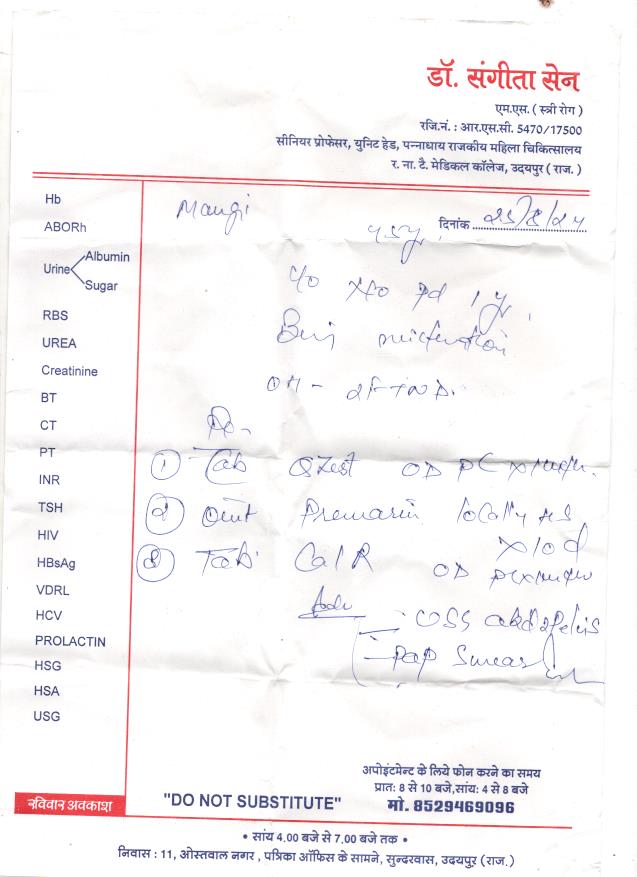 डॉ. संगीता सेन
एम.एस. ( स्त्री रोग )
रजि.नं. : आर.एस.सी. 5470/17500
सीनियर प्रोफेसर, युनिट हेड, पन्नाधाय राजकीय महिला चिकित्सालय
र. ना. टै. मेडिकल कॉलेज, उदयपुर ( राज. )
Mangi
दिनांक
Hb
ABORh
Urine Albumin
Sugar
RBS
UREA
Creatinine
BT
CT
PT
INR
TSH
HIV
HBsAg
VDRL
HCV
PROLACTIN
HSG
HSA
USG
Burn micturation
OH - 2FTND
① Tab OD PC
② Oint Premarin locally HS
x10d
③ Tab. Cal R OD
Adv
- USG abd & pelvis
- Pap Smear
अपोइंटमेन्ट के लिये फोन करने का समय
प्रात: 8 से 10 बजे,सांय: 4 से 8 बजे
मो. 8529469096
रविवार अवकाश
"DO NOT SUBSTITUTE"
• सांय 4.00 बजे से 7.00 बजे तक •
निवास : 11, ओस्तवाल नगर , पत्रिका ऑफिस के सामने, सुन्दरवास, उदयपुर (राज.)